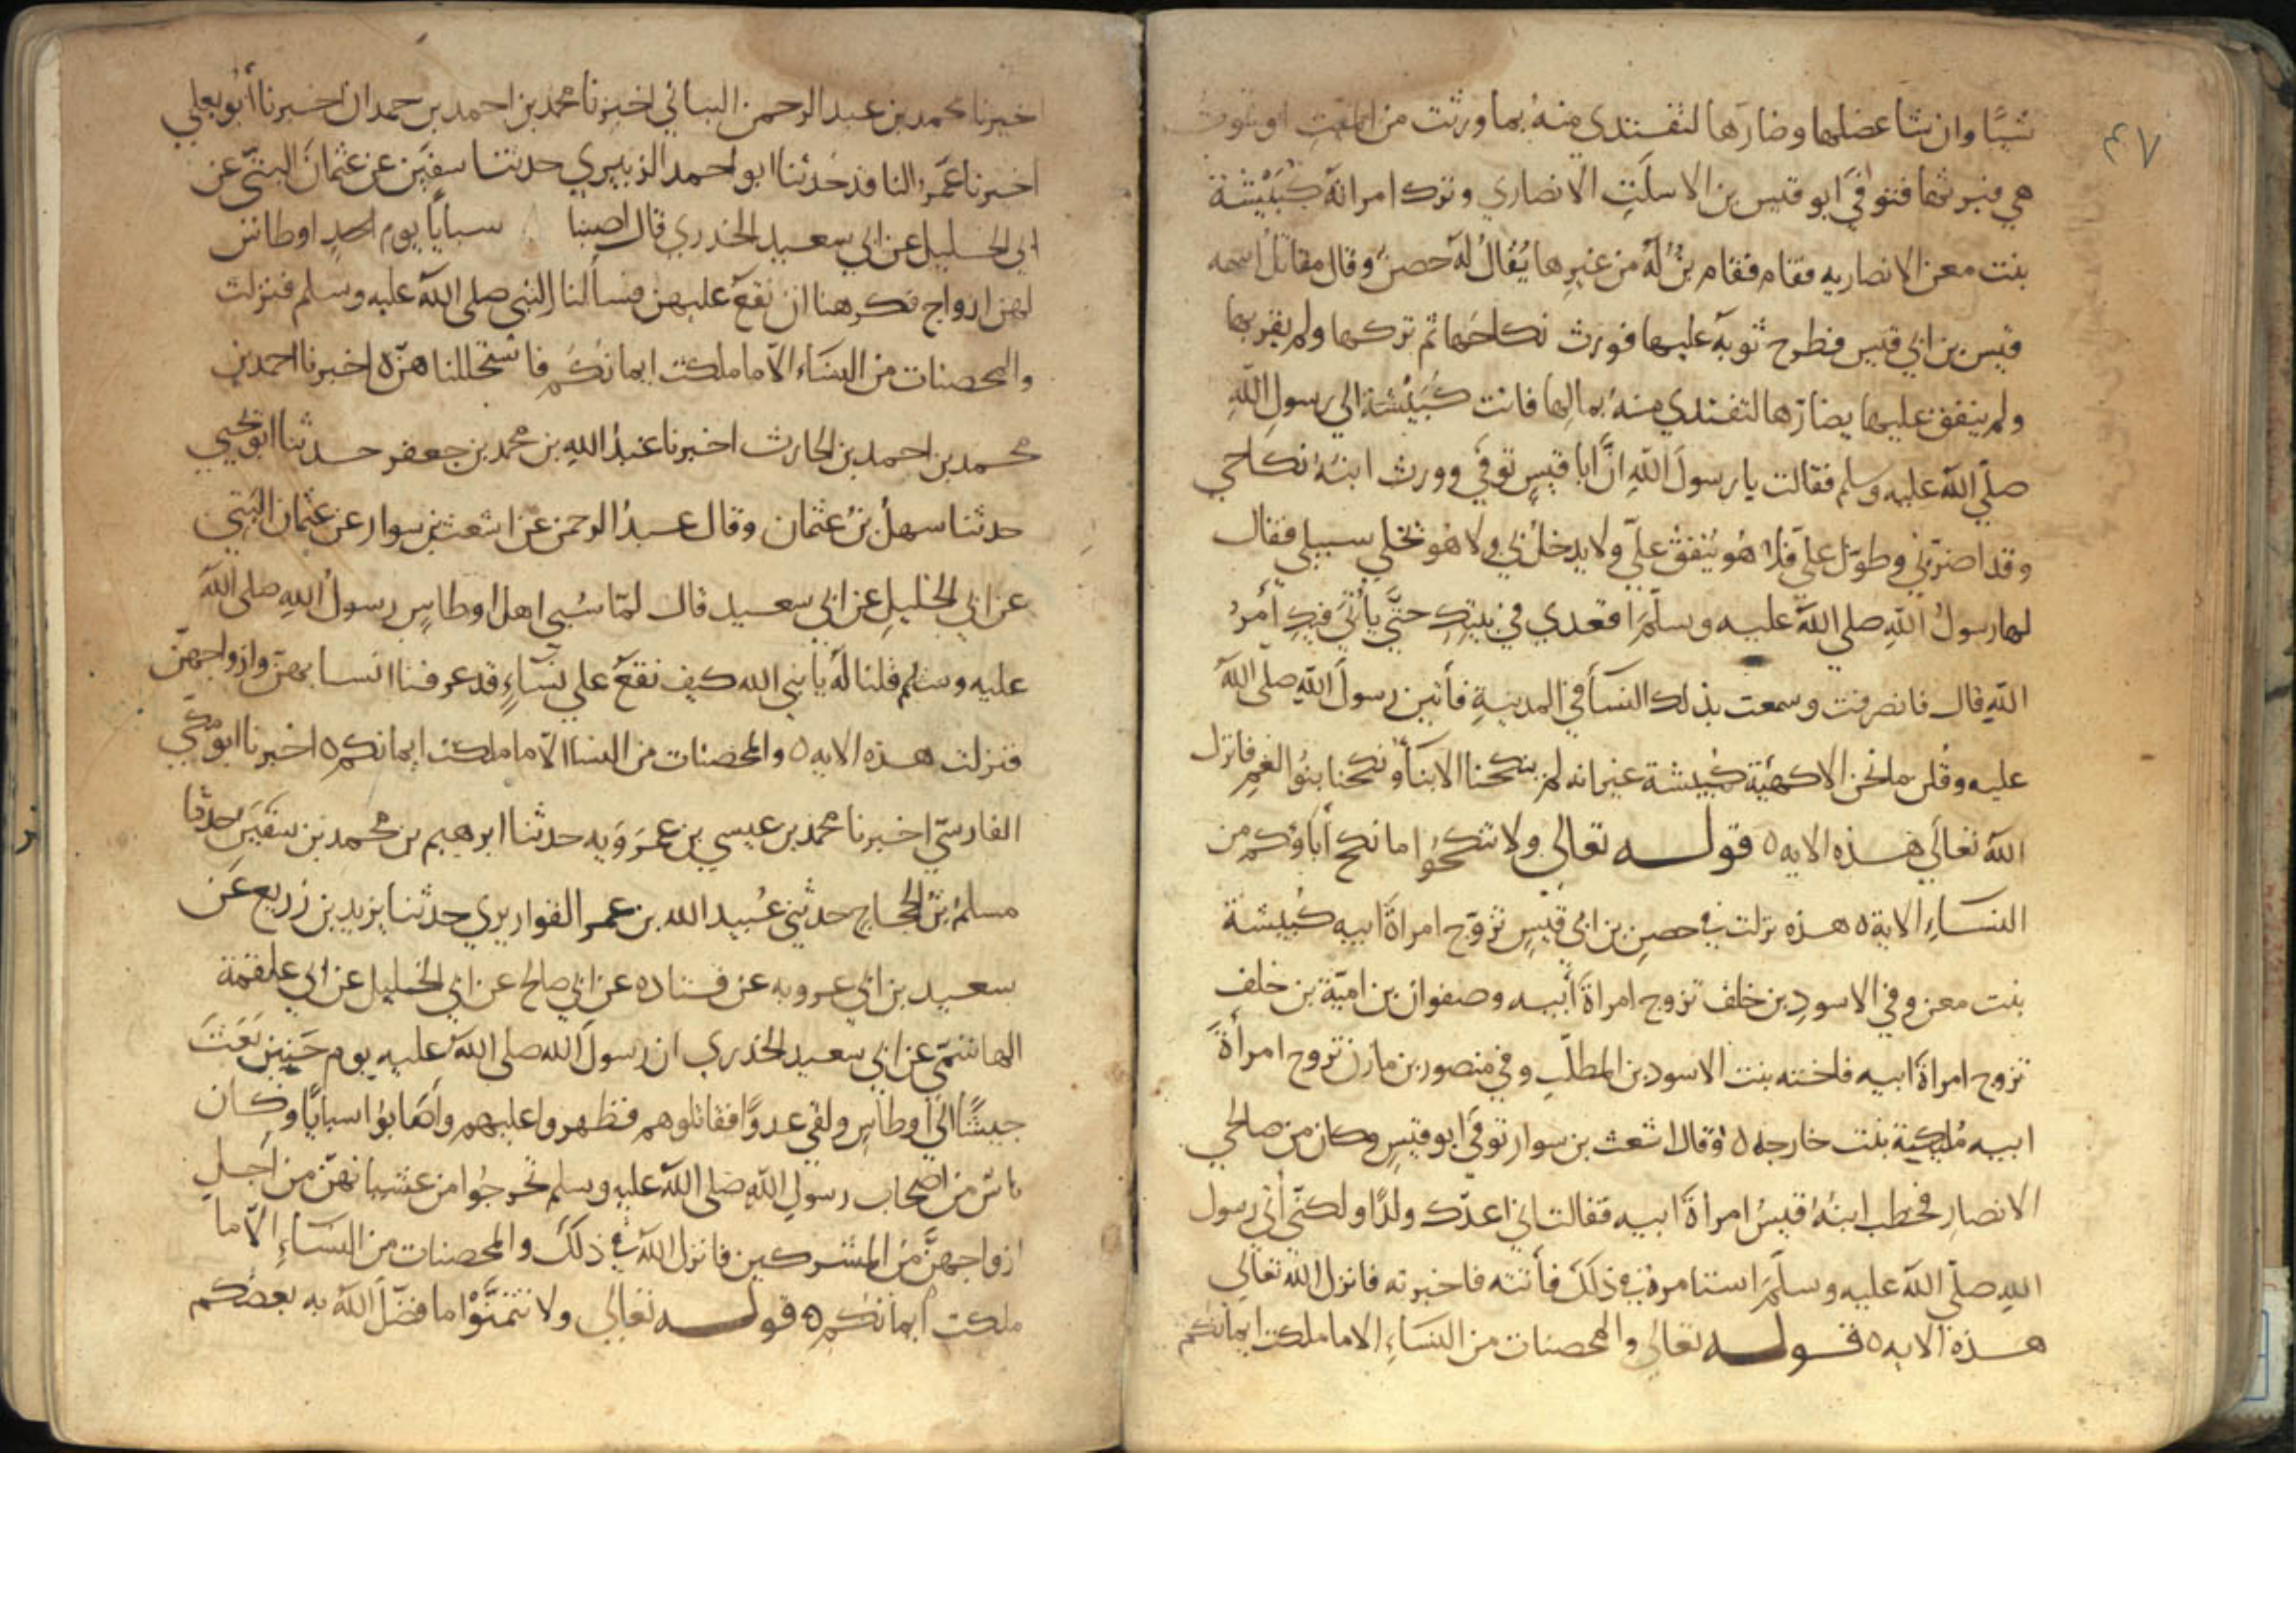 ٤٧
شيًا وان شا عضلها وضارها لتفتدي منه بما ورثت من الميت او تموت
هي فيرثها فتوفي ابو قيس بن الاسلت الانصاري وترك امراته كبيشة
بنت معن الانصاريه فقام فقام بن له من غيرها يُقال له حصن وقال مقاتل اسمه
قيس بن ابي قيس فطرح ثوبه عليها فورث نكاحها ثم تركها ولم يقربها
ولم ينفق عليها يضارها لتفتدي منه بمالها فاتت كُبَيْشة الي رسول الله
صلي الله عليه وسلم فقالت يا رسول الله انّ ابا قيس توفي وورث ابنه نكاحي
وقد اضرّ بي وطوّل عليّ فلا هُو يُنفق عليّ ولا يدخل بي ولا هو يخلي سبيلي فقال
لها رسول الله صلي الله عليه وسلّم اقعدي في بيتك حتّي ياتي فيكِ أمرُ
الله قال فانصرفت وسمعت بذلك النسا في المدينة فأتين رسول الله صلي الله
عليه وقلن ما نحن الا كهئية كبيشة غير انه لم ينكحنا الابنأ ونكحنا بنُوا العم فانزل
الله تعالي هذه الايه ه قوله تعالي ولا تنكحوا ما نكح أباؤكم من
النسَاءِ الاية ه هذه نزلت في حصن بن ابي قيس تزوّج امراةَ ابيه كُبيشة
بنت معن وفي الاسود بن خلف تزوج امراةَ أبيه وصفوان بن اميّة بن خلف
تزوج امراةَ ابيه فاخته بنت الاسود بن المطلب وفي منصور بن مازن تزوج امرأةَ
ابيه مُليكية بنت خارجه ه وقال اشعث بن سوار توفي ابو قيس وكان من صالحي
الانصار فخطب ابنُه قيسُ امراةَ ابيه فقالت اني اعدّك ولدًا ولكنّي أتي رسول
الله صلّي الله عليه وسلّم استامره في ذلك فأتته فاخبرته فانزل الله تعالي
هذه الايه ه قوله تعالي والمحصنات من النسَاءِ الا ما ملكت ايمانكم
اخبرنا محمد بن عبد الرحمن البناني اخبرنا محمد بن احمد بن حمدان اخبرنا أبو يعلي
اخبرنا عَمرو الناقد حدثنا ابو احمد الزبيري حدثنا سفين عن عثمان البتّي عن
ابي الخليل عن ابي سعيد الخدري قال اصبنا سبايا يوم احدٍ اوطاس
لهن ازواج فكرهنا ان نقع عليهن فسألنا النبي صلي الله عليه وسلم فنزلت
والمحصنات من النسَاء الاّ ما ملكت ايمانكم فاستحللناهنّ ه اخبرنا احمد بن
محمد بن احمد بن الحارث اخبرنا عبد الله بن محمد بن جعفر حدثنا ابو يحيي
حدثنا سهل بن عثمان وقال عبدُ الرحمن عن اشعث بن سوار عن عثمان البتي
عن ابي الخليل عن ابي سعيد قال لمّا سُبي اهل اوطاس رسول الله صلي الله
عليه وسلم قلنا له يا نبي الله كيف نقع علي نسَاءٍ قد عرفنا انسابهنّ وازواجهنّ
فنزلت هذه الايه ه والمحصنات من النسا الاّ ما ملكت ايمانكم ه اخبرنا ابو بكر
الفارسيّ اخبرنا محمد بن عيسي بن عمرويه حدثنا ابرهيم بن محمد بن سفين حدثنا
مسلم بن الحجاج حدثني عُبيد الله بن عمر القواريري حدثنا يزيد بن زريع عَن
سعيد بن ابي عروبه عن قتاده عن ابي صالح عن ابي الخليل عن ابي علقمة
الهاشمّي عن ابي سعيد الخدري ان رسول الله صلي الله عليه يوم حنين بَعَثَ
جيشًا الي اوطاس ولقي عدوًا فقاتلوهم فظهروا عليهم واصابوا سبايًا وكان
ناسٌ من اصحاب رسول الله صلي الله عليه وسلم تحرجُوا من غشيانهنّ من أجل
ازواجهنَّ من المشركين فانزل الله في ذلك والمحصنات من النسَاءِ الاّ ما
ملكت ايمانكم ه قوله تعالي ولا تتمنَّوْا ما فضّل الله به بعضكم